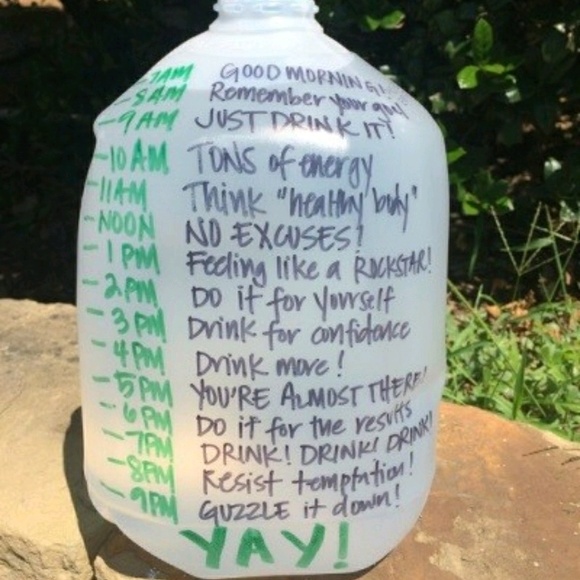 7AM GOOD MORNING!
- 8AM Remember your goal
- 9AM JUST DRINK IT!
- 10 AM TONS of energy
- 11AM Think "healthy body"
- NOON NO EXCUSES!
- 1 PM Feeling like a ROCKSTAR!
- 2PM DO it for yourself
- 3 PM Drink for confidence
- 4PM Drink more!
- 5PM YOU'RE ALMOST THERE!
- 6 PM Do it for the results
- 7PM DRINK! DRINK! DRINK!
- 8PM Resist temptation!
- 9PM GUZZLE it down!
YAY!